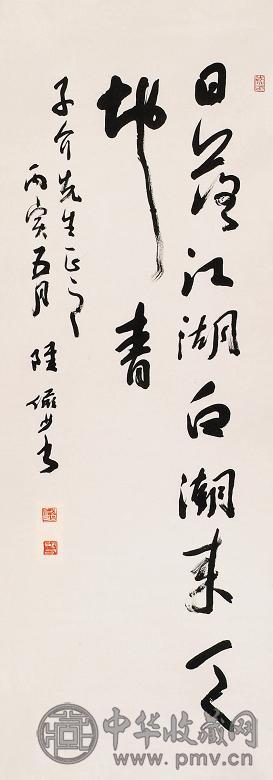 日落江湖白潮來天
地青
子介先生正之
丙寅五月 陸儼少書
中华收藏网
www.pmv.cn